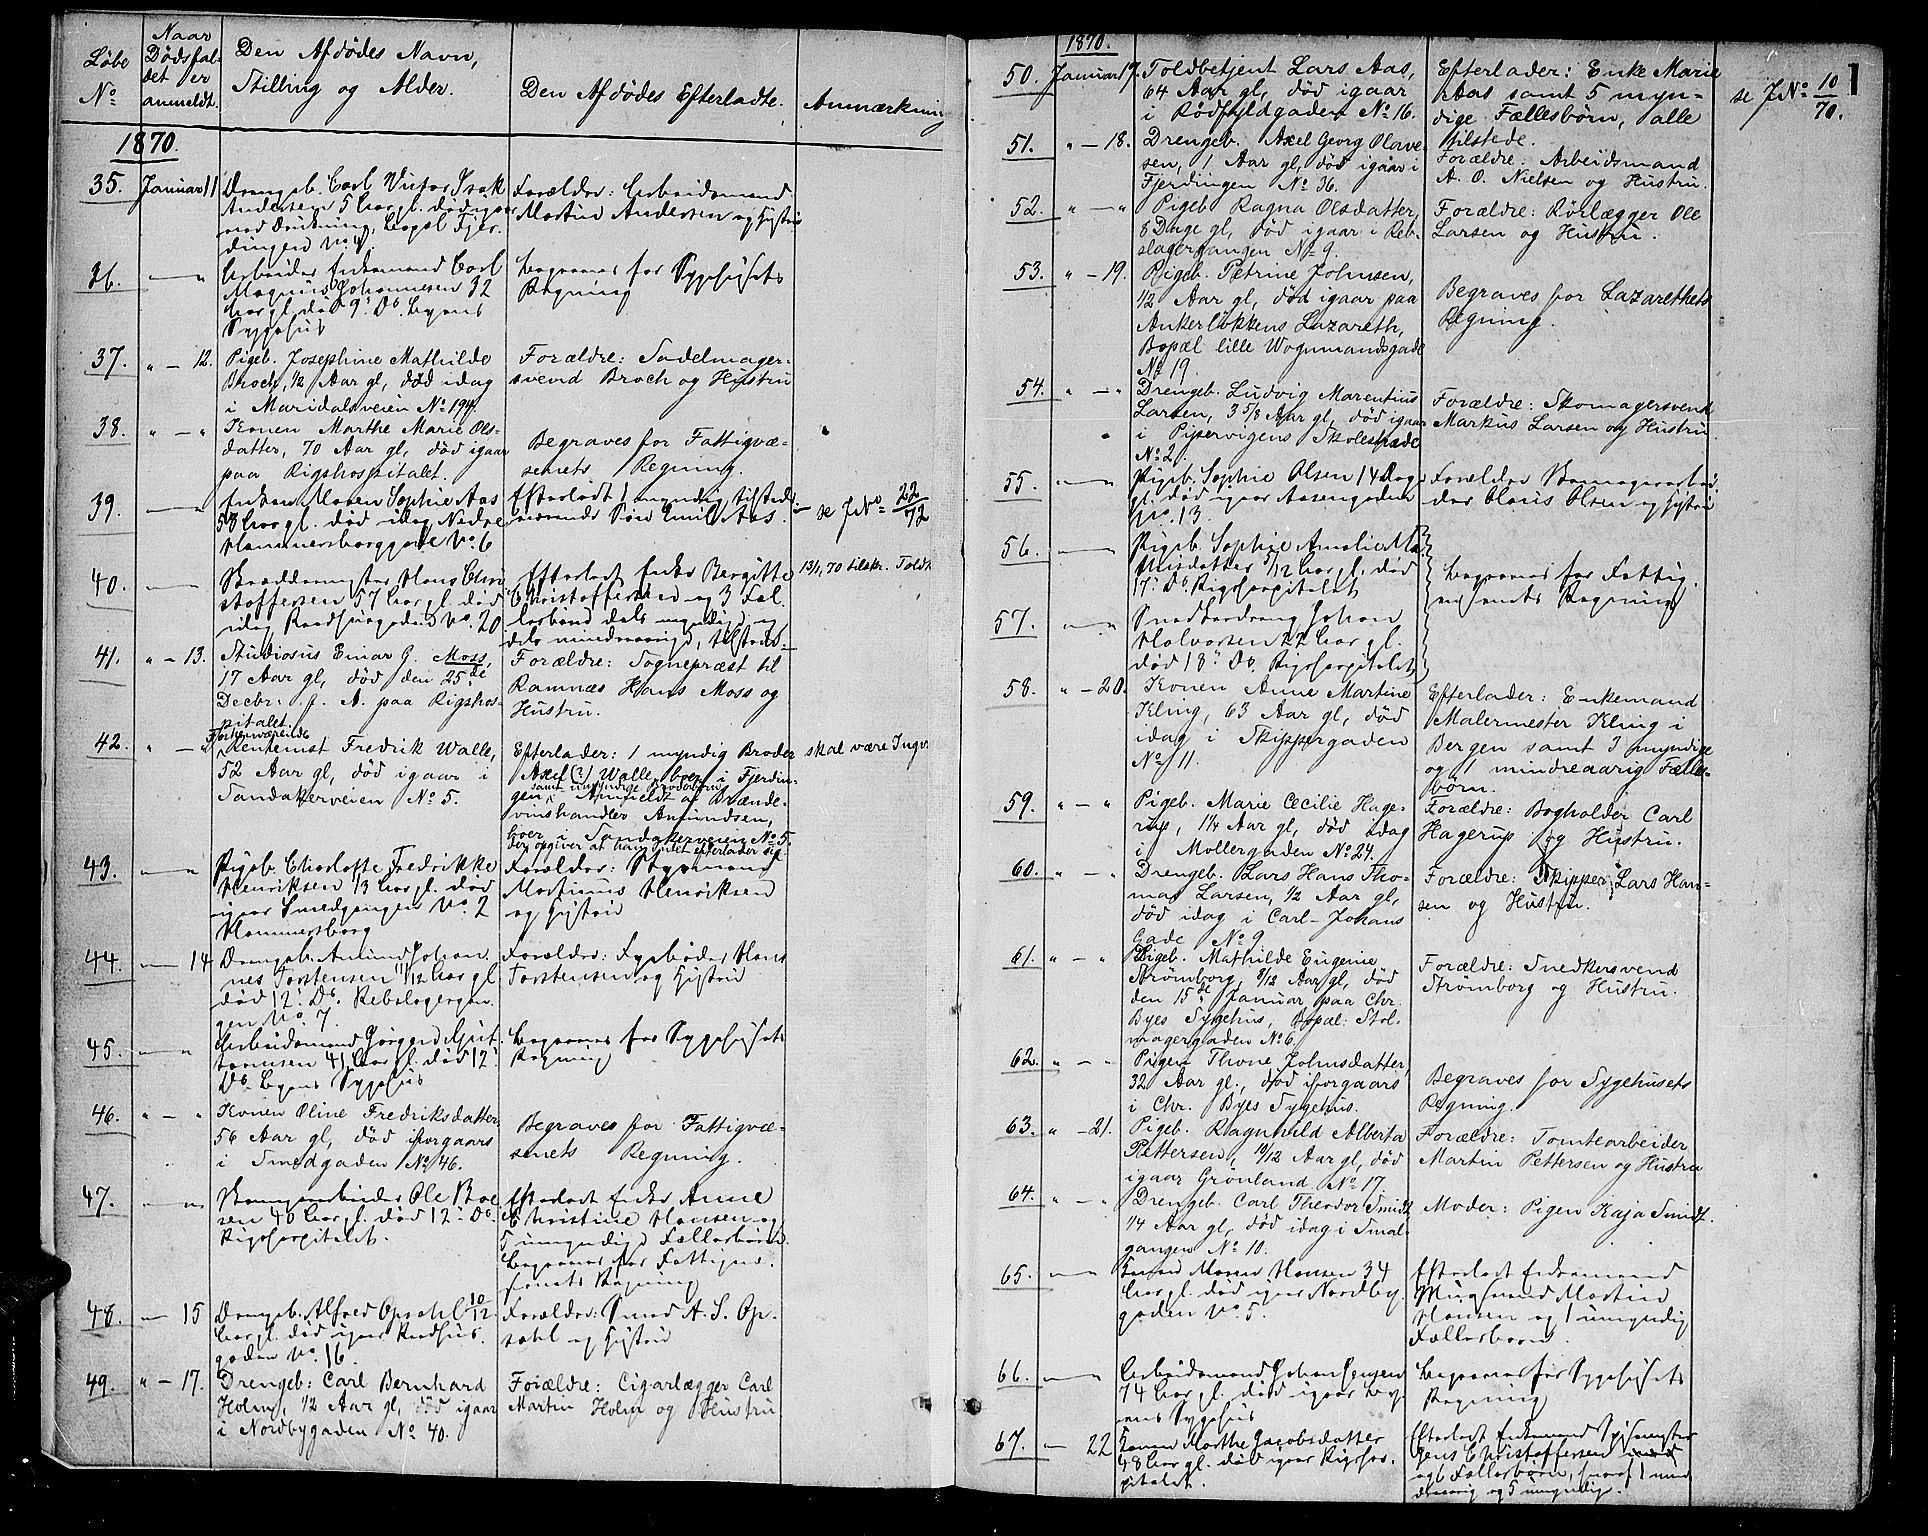 Løbe
No
Naar
Dødsfal-
det er
anmeldt.
Den Afdødes Navn,
Stilling og Alder.
Den Afdødes Efterladte.
Anmærkning
1870.
35. Januar 11
Drengeb. Carl Victor Isak
Andersen 5 Aar gl. død igaar
ved Drukning, Bopæl Fjer-
dingen No. 4.
Forældre: Arbeidsmand
Martin Andersen og Hustru
36. — "
Arbeider Enkemand Carl
Magnus Johannesen 32
Aar gl. død 9. Ds. Byens
Sygehus
Begraves for Sygehusets
Regning
37. " — 12.
Pigeb. Josephine Mathilde
Broch, 1/2 Aar gl, død idag
i Maridalsveien No 194.
Forældre: Sadelmager-
svend Broch og Hustru
38. " — "
Konen Marthe Marie Ols-
datter, 70 Aar gl, død igaar
paa Rigshospitalet.
Begraves for Fattigvæ-
senets Regning.
39. — "
Enken Maren Sophie Aas
58 Aar gl. død idag Nedre
Hammersborggade No. 6
Efterladt 1 myndig tilstede-
værende Søn Emil Aas.
se J No 22/72
40. — "
Skræddermester Hans Chri
stoffersen 57 Aar gl. død
idag Raadhusgaden No. 20
Efterladt Enke Bergitte
Christoffersen og 3 Fæl-
lesbørn dels myndige og
dels mindreaarige, tilstede
13/1 70 tilskr. Foldt
41. " — 13.
Studiosus Einar G. Moss,
17 Aar gl, død den 25de
Decbr. f. A. paa Rigshos-
pitalet.
Forældre: Sognepræst til
Ramnæs Hans Moss og
Hustru.
42. " — "
Forhenværende
Rentenist Fredrik Walle,
52 Aar gl, død igaar i
Sandakerveien No 5.
Efterlader: 1 myndig Broder
Axel (?) Walle, boer i Fjerdin-
samt umyndige Broderbørn
gen. Anmeldt af Brænde-
vinshandler Amundsen,
boer i Sandakerveien No 5.
der opgiver at han intet efterlader sig.
skal være Ingv.
43. — "
Pigeb. Charlotte Fredrikke
Henriksen 13 Aar gl. død
igaar Smedgangen No. 2
Hammersborg
Forældre: Styrmand
Martinus Henriksen
og Hustru
44. — 14
Drengeb. Amund Johan-
nes Torstensen 11/12 Aar gl
død 12. Ds. Rebslagergan-
gen No. 7.
Forældre: Fyrbøder Hans
Torstensen og Hustru
45. — "
Arbeidsmand Jørgen Gut-
tormsen 41 Aar gl. død 12.
Ds. Byens Sygehus
Begraves for Sygehusets
Regning
46. " — "
Konen Oline Fredriksdatter,
56 Aar gl, død iforgaars
i Smedgaden No 46.
Begraves for Fattigvæ-
senets Regning.
47. — "
Ole Boe
sen 40 Aar gl. død 12. Ds.
Rigshospitalet.
Efterladt Enke Anne
Christine Hansen og
5 umyndige Fællesbørn.
Begraves for Fattigvæ-
senets Regning
48. — 15
Drengeb. Alfred Opsahl 10/12
Aar gl. død igaar Raadhus-
gaden No. 16
Forældre: Smed A. S. Op-
sahl og Hustru
49. " — 17.
Drengeb: Carl Bernhard
Holm, 1/2 Aar gl, død igaar
i Nordbygaden No 40.
Forældre: Cigarlægger Carl
Martin Holm og Hustru
1
1870.
50. Januar 17.
Toldbetjent Lars Aas,
64 Aar gl, død igaar
i Rødfyldgaden No 16.
Efterlader: Enke Marie
Aas samt 5 myn-
dige Fællesbørn, alle
tilstede.
se J No 10/70.
51. " — 18.
Drengeb. Axel Georg Olave-
sen, 1 Aar gl, død igaar i
Fjerdingen No 36.
Forældre: Arbeidsmand
A. O. Nielsen og Hustru.
52. " — "
Pigeb Ragna Olsdatter,
8 Dage gl, død igaar i Reb-
slagergangen No 9.
Forældre: Rørlægger Ole
Larsen og Hustru.
53. " — 19.
Pigeb. Petrine Johnsen,
1/2 Aar gl, død igaar paa
Ankerløkkens Lazareth,
Bopæl lille Wognmandsgade
No 19.
Begraves for Lazarethets
Regning.
54. " — "
Drengeb. Ludvig Marentius
Larsen, 3 5/8 Aar gl, død igaar
i Pipervigens Skolestræde
No 2.
Forældre: Skomagersvend
Markus Larsen og Hustru.
55. — "
Pigeb. Sophie Olsen 14 Dage
gl. død igaar Aasengaden
No. 13.
Forældre Skomagerarbei-
der Claus Olsen og Hustru
56. — "
Pigeb. Sophie Amalie
5/12 Aar gl. død
17. Ds. Rigshospitalet
Begraves for Fattig-
væsenets Regning
57. — "
Snedkerdreng Johan
Halvorsen 22 Aar gl.
død 18. Ds. Rigshospitalet
58. " — 20.
Konen Anne Martine
Kling, 63 Aar gl, død
idag i Skippergaden
No 11.
Efterlader: Enkemand
Malermester Kling i
Bergen samt 3 myndige
og 1 mindreaarig Fælles-
børn.
59. " — "
Pigeb. Marie Cecilie Hage-
rup, 1 1/4 Aar gl, død idag
i Møllergaden No 24.
Forældre: Bogholder Carl
Hagerup og Hustru.
60. " — "
Drengeb. Lars Hans Tho-
mas Larsen, 1/2 Aar gl,
død idag i Carl-Johans
Gade No 9.
Forældre: Skipper Lars Han-
sen og Hustru.
61. " — "
Pigeb. Mathilde Eugenie
Strømborg, 8/12 Aar gl, død
den 15de Januar paa Chr.
Byes Sygehus, Bopæl: Stol-
magergaden No 6.
Forældre: Snedkersvend
Strømborg og Hustru.
62. " — "
Pigen Thone Johnsdatter,
32 Aar gl., død iforgaars
i Chr. Byes Sygehus.
Begraves for Sygehusets
Regning.
63. " — 21.
Pigeb. Ragnhild Alberta
Pettersen, 10/12 Aar gl, død
igaar Grønland No 17.
Forældre: Tomtearbeider
Martin Pettersen og Hustru
64. " — "
Drengeb. Carl Theodor Smidt,
1/4 Aar gl, død idag i Smal-
gangen No 10.
Moder: Pigen Kaja Smidt.
65. — "
Konen Maren Hansen 34
Aar gl. død igaar Nordby-
gaden No. 5.
Efterladt Enkemand
Murmand Martin
Hansen og 1 umyndig
Fællesbarn.
66. — "
Arbeidsmand Johan Jensen
74 Aar gl. død igaar By-
ens Sygehus
Begraves for Sygehusets
Regning
67. — 22
Konen Marthe Jacobsdatter
48 Aar gl. død igaar Rigshos-
pitalet.
Efterladt Enkemand
Jens Christoffersen
og 6 Fællesbørn, hvoraf 1 mind
dreaarig og 5 umyndige.